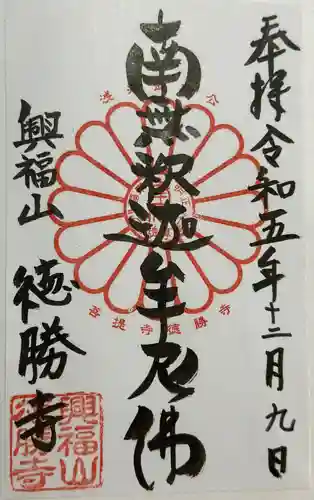 奉拝令和五年十二月九日
南無釈迦牟尼佛
興福山
徳勝寺
興福山
徳勝寺
菩提寺徳勝寺